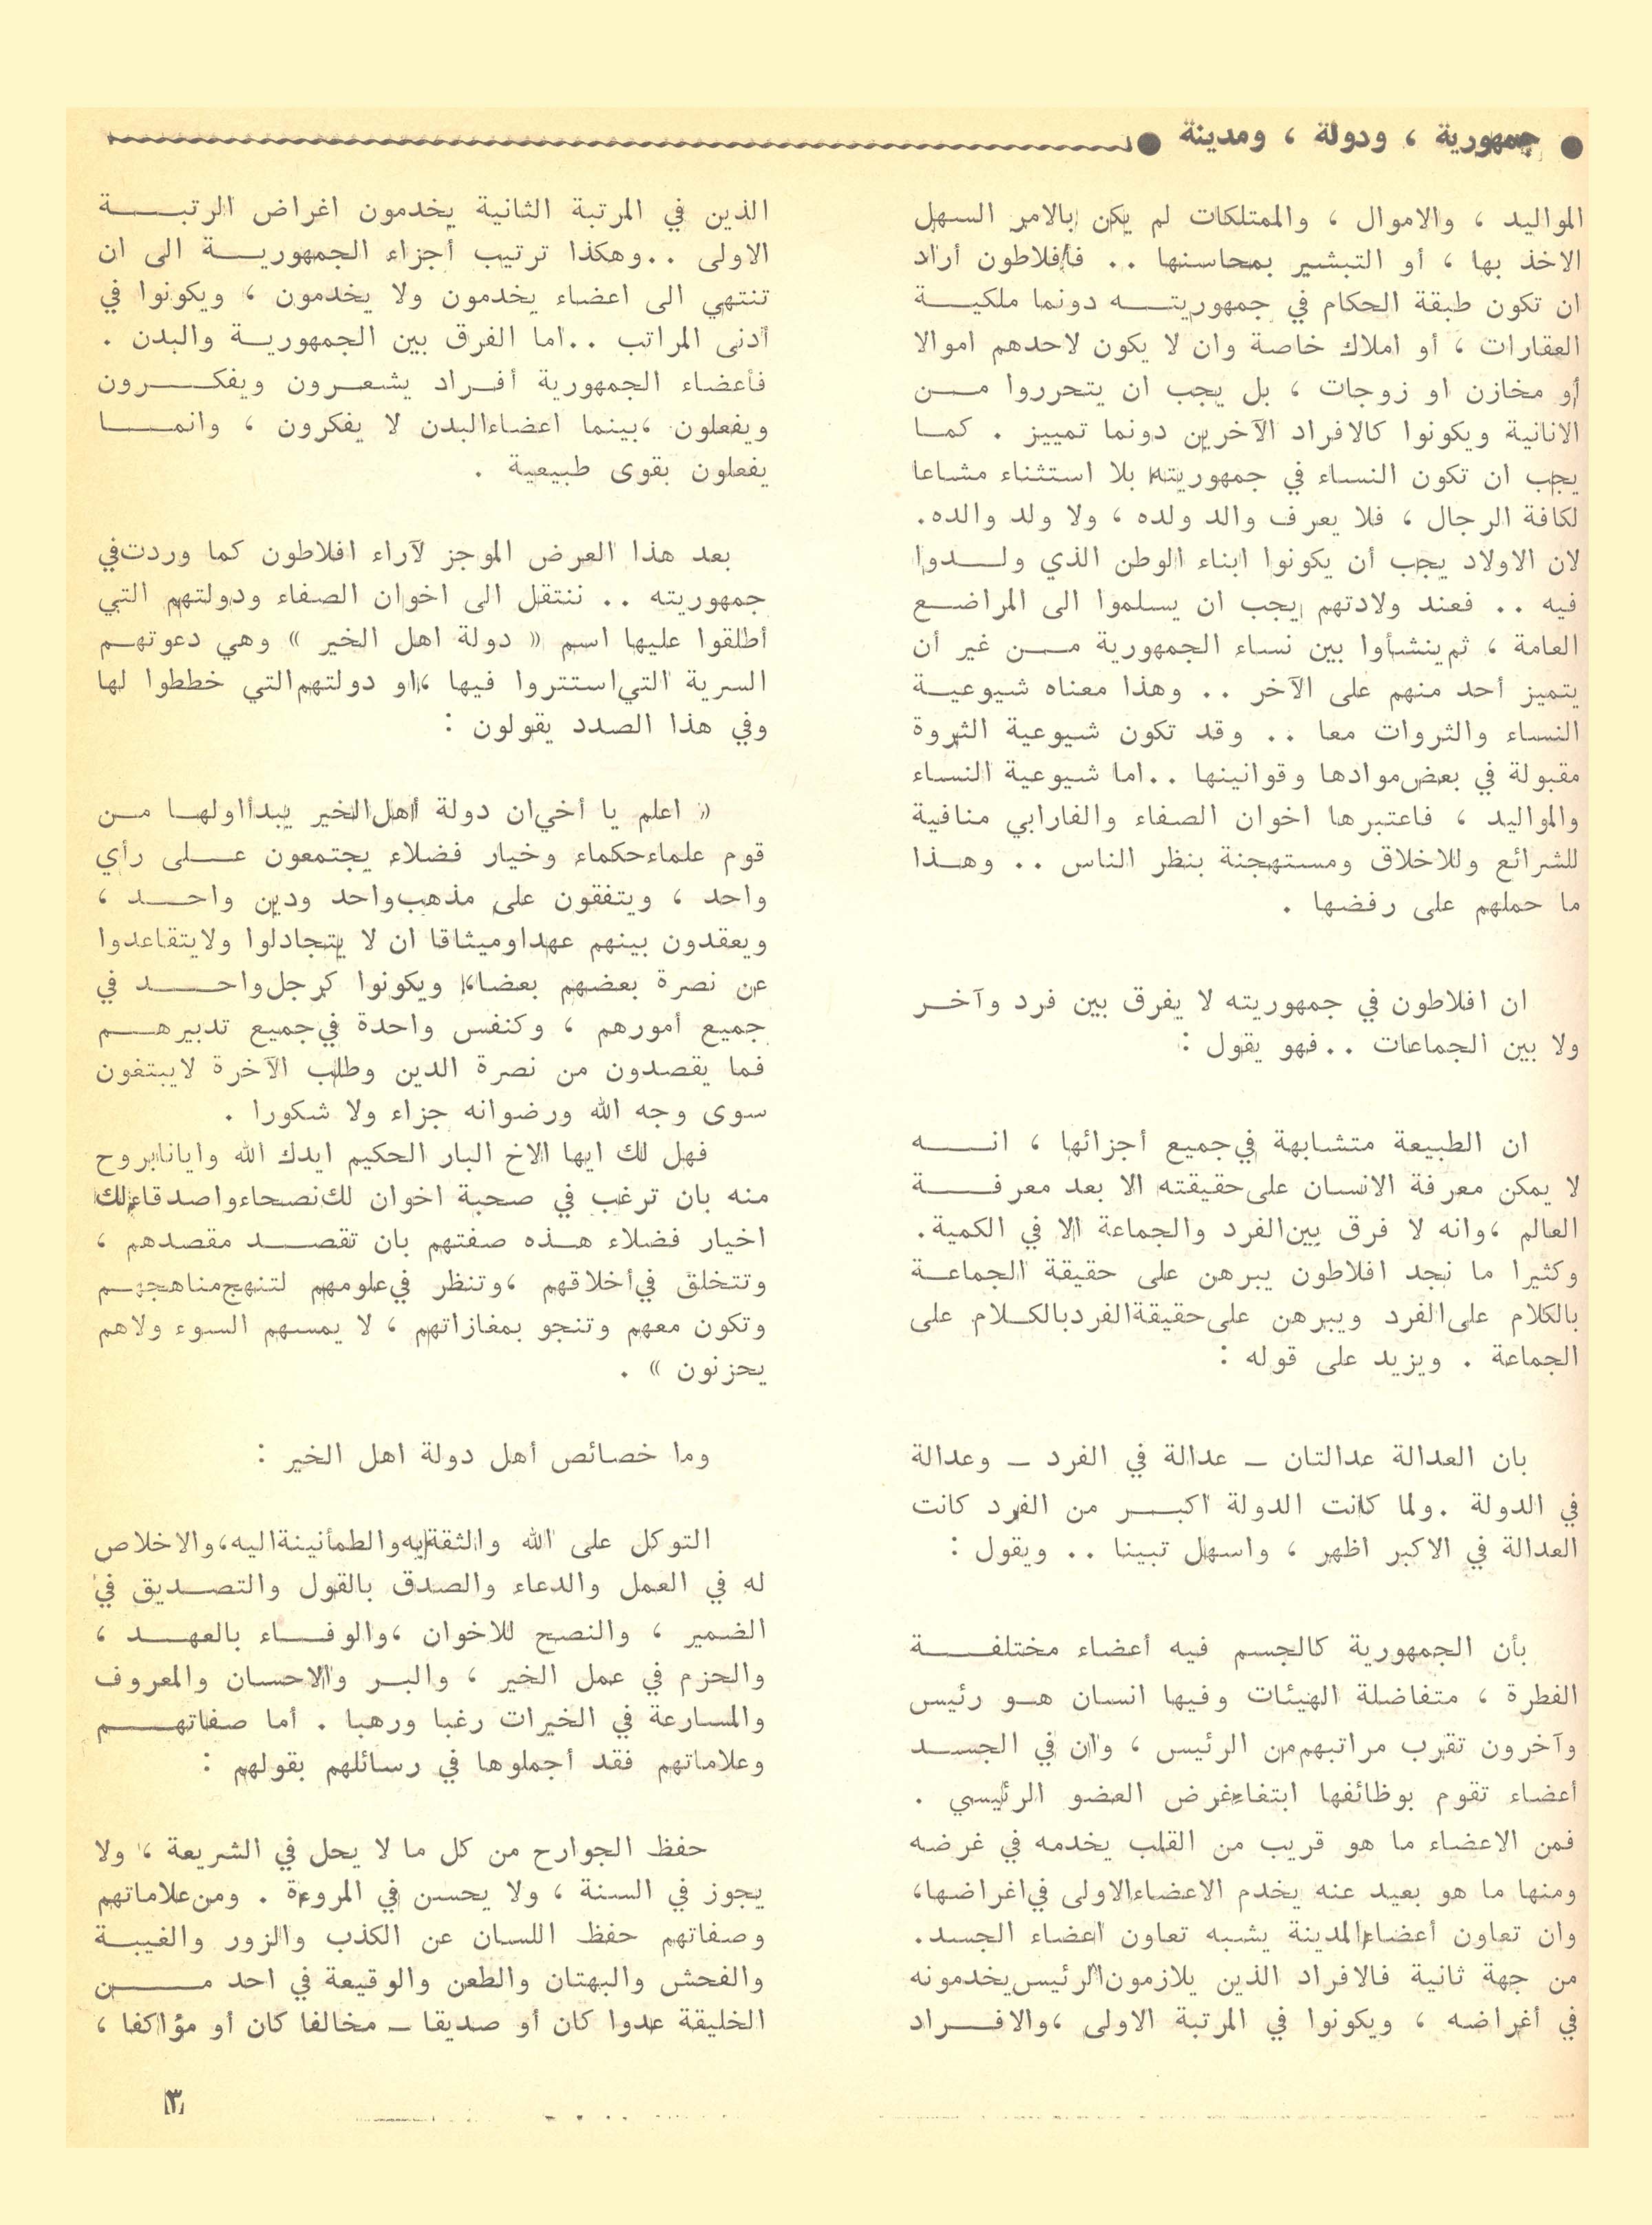 ● جمهورية ، ودولة ، ومدينة ●
المواليد ، والاموال ، والممتلكات لم يكن بالامر السهل
الاخذ بها ، أو التبشير بمحاسنها .. فأفلاطون أراد
ان تكون طبقة الحكام في جمهوريته دونما ملكية
العقارات ، أو املاك خاصة وان لا يكون لاحدهم اموالا
أو مخازن او زوجات ، بل يجب ان يتحرروا من
الانانية ويكونوا كالافراد الآخرين دونما تمييز . كما
يجب ان تكون النساء في جمهوريته بلا استثناء مشاعا
لكافة الرجال ، فلا يعرف والد ولده ، ولا ولد والده.
لان الاولاد يجب أن يكونوا ابناء الوطن الذي ولدوا
فيه .. فعند ولادتهم يجب ان يسلموا الى المراضع
العامة ، ثم ينشأوا بين نساء الجمهورية من غير أن
يتميز أحد منهم على الآخر .. وهذا معناه شيوعية
النساء والثروات معا .. وقد تكون شيوعية الثروة
مقبولة في بعض موادها وقوانينها ..اما شيوعية النساء
والمواليد ، فاعتبرها اخوان الصفاء والفارابي منافية
للشرائع وللاخلاق ومستهجنة بنظر الناس .. وهذا
ما حملهم على رفضها .
ان افلاطون في جمهوريته لا يفرق بين فرد وآخر
ولا بين الجماعات ..فهو يقول :
ان الطبيعة متشابهة في جميع أجزائها ، انه
لا يمكن معرفة الانسان على حقيقته الا بعد معرفة
العالم ،وانه لا فرق بين الفرد والجماعة الا في الكمية.
وكثيرا ما نجد افلاطون يبرهن على حقيقة الجماعة
بالكلام على الفرد ويبرهن على حقيقة الفرد بالكلام على
الجماعة . ويزيد على قوله :
بان العدالة عدالتان – عدالة في الفرد – وعدالة
في الدولة .ولما كانت الدولة اكبر من الفرد كانت
العدالة في الاكبر اظهر ، واسهل تبينا .. ويقول :
بأن الجمهورية كالجسم فيه أعضاء مختلفة
الفطرة ، متفاضلة الهيئات وفيها انسان هو رئيس
وآخرون تقرب مراتبهم من الرئيس ، وان في الجسد
أعضاء تقوم بوظائفها ابتغاء غرض العضو الرئيسي .
فمن الاعضاء ما هو قريب من القلب يخدمه في غرضه
ومنها ما هو بعيد عنه يخدم الاعضاء الاولى في اغراضها،
وان تعاون أعضاء المدينة يشبه تعاون اعضاء الجسد.
من جهة ثانية فالافراد الذين يلازمون الرئيس يخدمونه
في أغراضه ، ويكونوا في المرتبة الاولى ،والافراد
الذين في المرتبة الثانية يخدمون اغراض الرتبة
الاولى ..وهكذا ترتيب أجزاء الجمهورية الى ان
تنتهي الى اعضاء يخدمون ولا يخدمون ، ويكونوا في
أدنى المراتب ..اما الفرق بين الجمهورية والبدن .
فأعضاء الجمهورية أفراد يشعرون ويفكرون
ويفعلون ،بينما اعضاء البدن لا يفكرون ، وانما
يفعلون بقوى طبيعية .
بعد هذا العرض الموجز لآراء افلاطون كما وردت في
جمهوريته .. ننتقل الى اخوان الصفاء ودولتهم التي
أطلقوا عليها اسم « دولة اهل الخير » وهي دعوتهم
السرية التي استتروا فيها ،او دولتهم التي خططوا لها
وفي هذا الصدد يقولون :
« اعلم يا أخي ان دولة أهل الخير يبدأ اولها من
قوم علماء حكماء وخيار فضلاء يجتمعون على رأي
واحد ، ويتفقون على مذهب واحد ودين واحد ،
ويعقدون بينهم عهدا وميثاقا ان لا يتجادلوا ولا يتقاعدوا
عن نصرة بعضهم بعضا، ويكونوا كرجل واحد في
جميع أمورهم ، وكنفس واحدة في جميع تدبيرهم
فما يقصدون من نصرة الدين وطلب الآخرة لا يبتغون
سوى وجه الله ورضوانه جزاء ولا شكورا .
فهل لك ايها الاخ البار الحكيم ايدك الله وايانا بروح
منه بان ترغب في صحبة اخوان لك نصحاء واصدقاء لك
اخيار فضلاء هذه صفتهم بان تقصد مقصدهم ،
وتتخلق في أخلاقهم ،وتنظر في علومهم لتنهج مناهجهم
وتكون معهم وتنجو بمفازاتهم ، لا يمسهم السوء ولا هم
يحزنون » .
وما خصائص أهل دولة اهل الخير :
التوكل على الله والثقة به والطمأنينة اليه،والاخلاص
له في العمل والدعاء والصدق بالقول والتصديق في
الضمير ، والنصح للاخوان ،والوفاء بالعهد ،
والحزم في عمل الخير ، والبر والاحسان والمعروف
والمسارعة في الخيرات رغبا ورهبا . أما صفاتهم
وعلاماتهم فقد أجملوها في رسائلهم بقولهم :
حفظ الجوارح من كل ما لا يحل في الشريعة ، ولا
يجوز في السنة ، ولا يحسن في المروءة . ومن علاماتهم
وصفاتهم حفظ اللسان عن الكذب والزور والغيبة
والفحش والبهتان والطعن والوقيعة في احد من
الخليقة عدوا كان أو صديقا – مخالفا كان أو مؤاكفا ،
٣